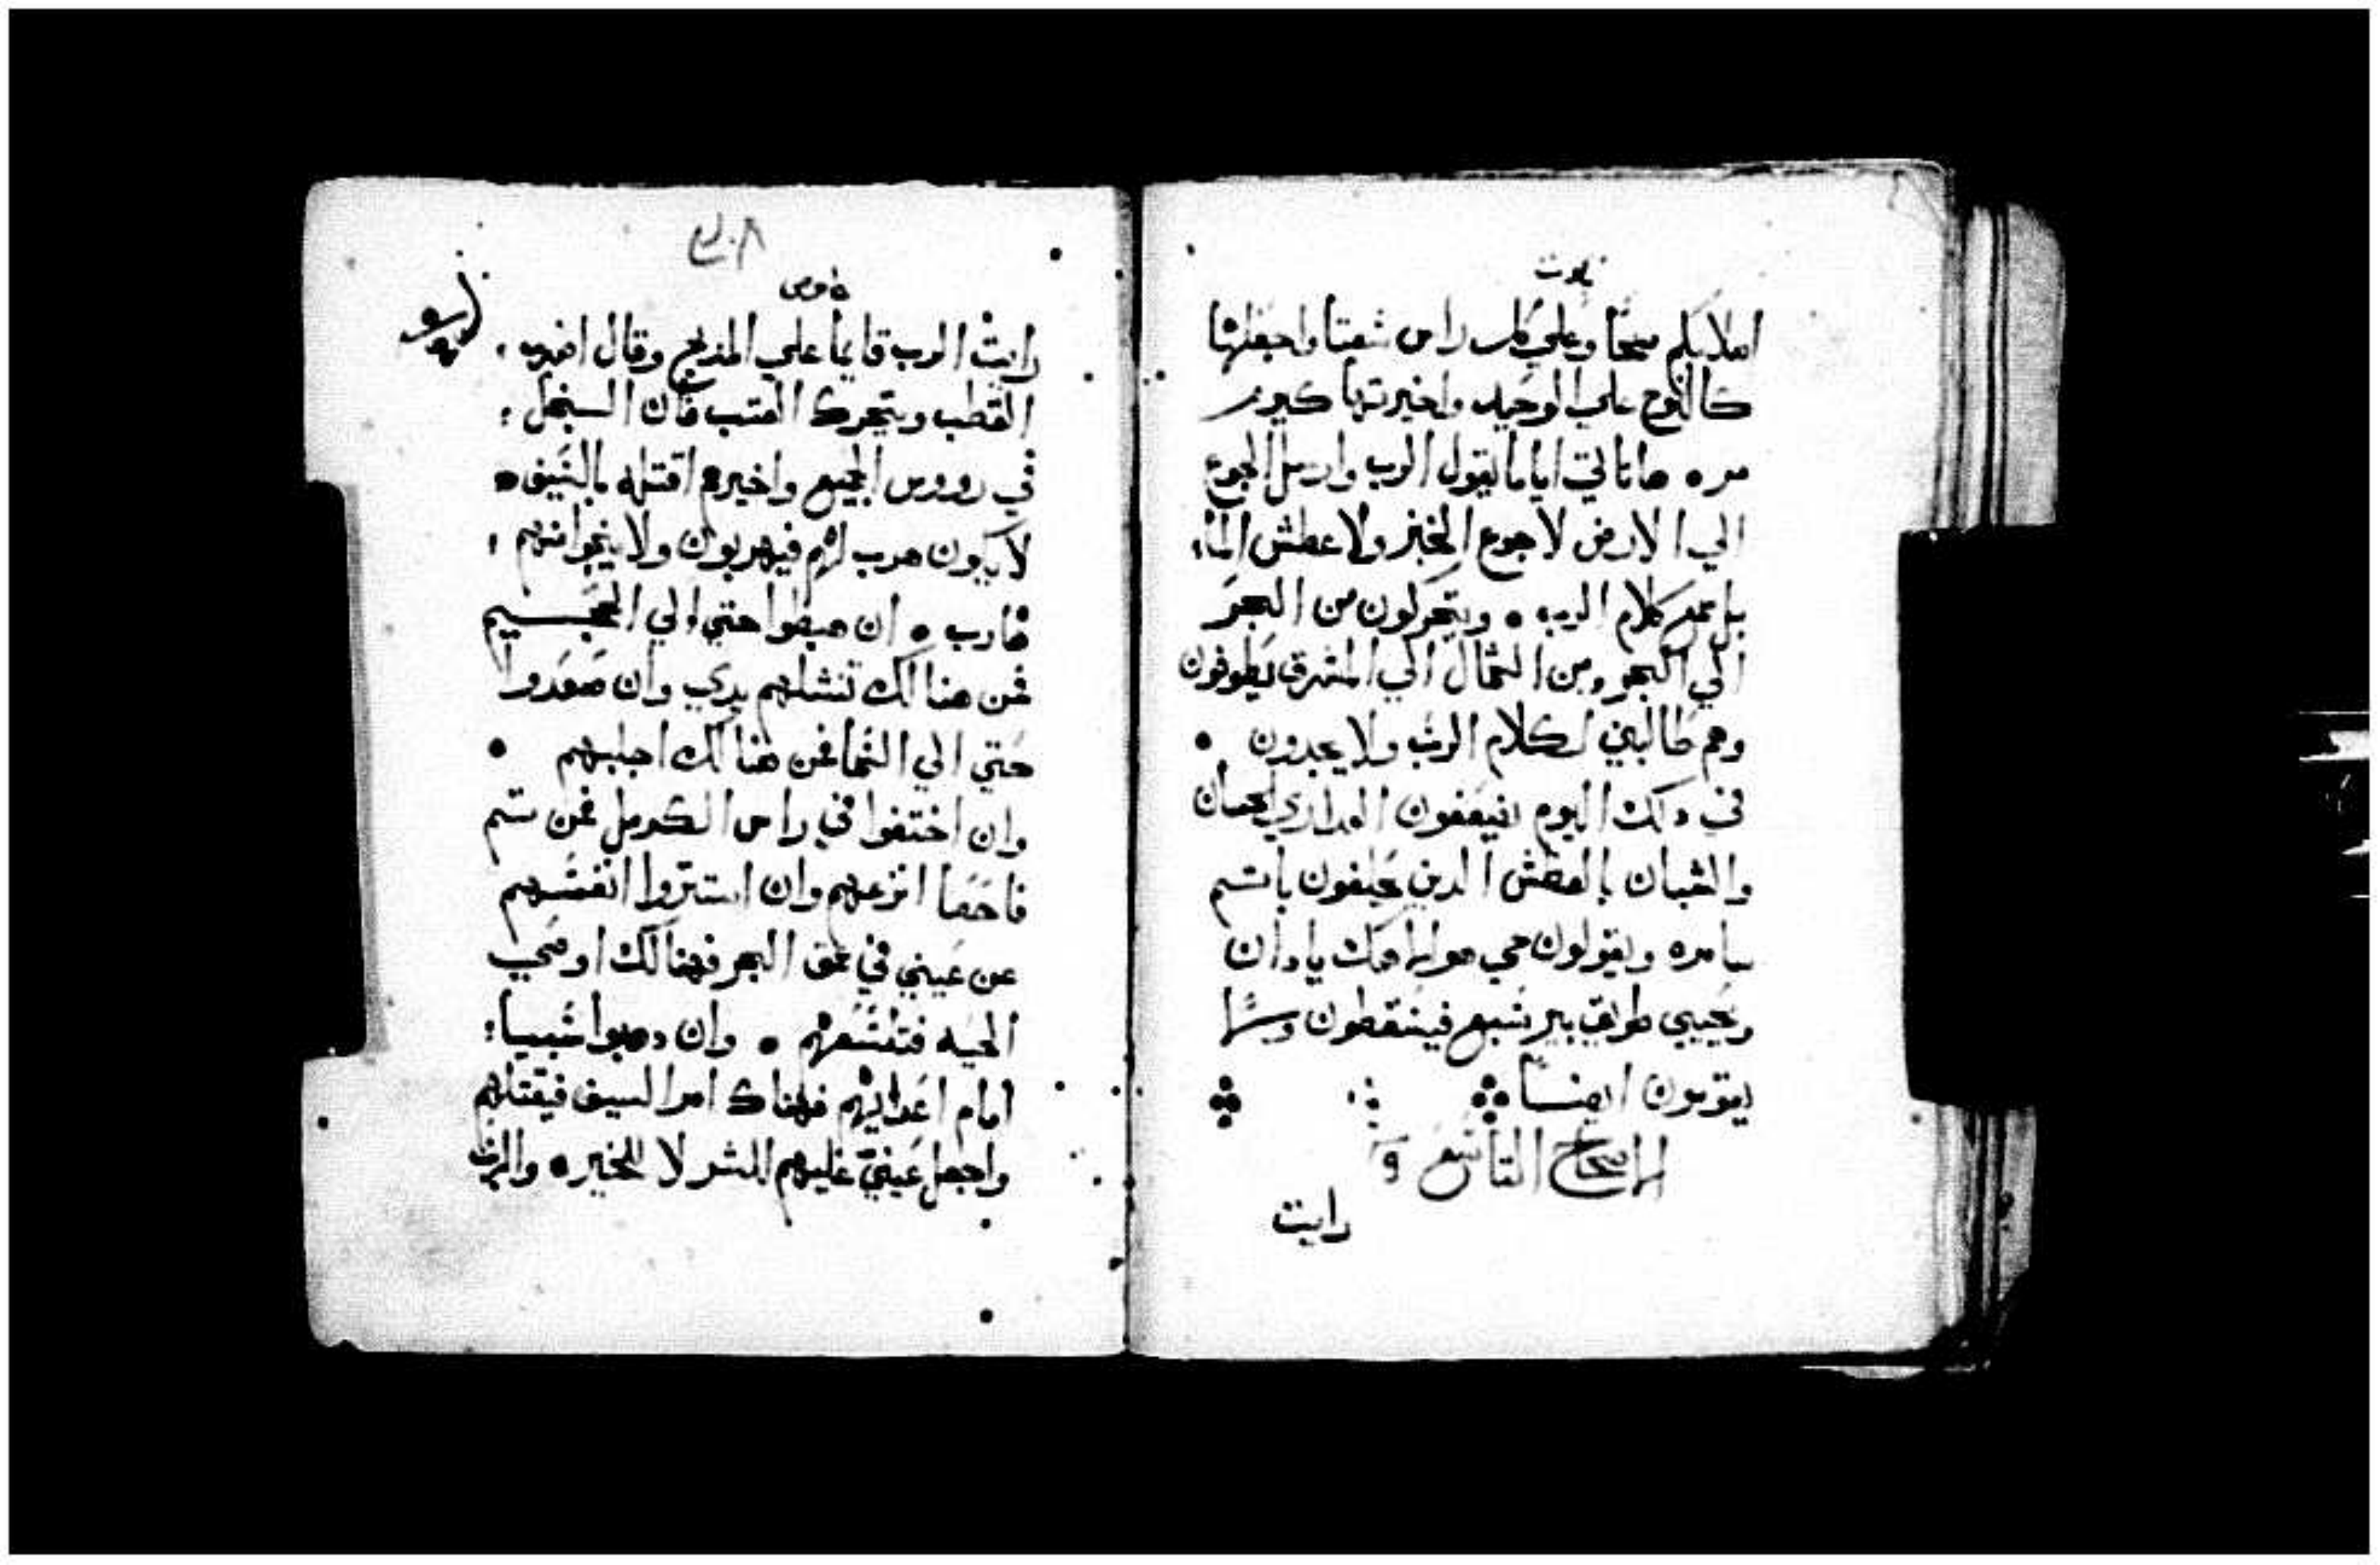 املابكم مسحًا وعلي كل راس شعتا واجعلها
كالنوح علي الوحيد واخيرتها كيوم
مره هاتاتي اياما يقول الرب وارسل الجوع
الي الارض لا جوع الخبز ولا عطش الماء
بل سمع كلام الرب ٠ ويتحركون من البحر
الي البحر ومن الشمال الي المشرق يطوفون
وهم طالبين لكلام الرب ولا يجدون ٠
في دلك اليوم يضعفون العداري الحسان
والشبان بالعطش الدين يحلفون باسم
سامره ويقولون حي هو الهك يا دان
ويحيي طريق بير سبع فيسقطون وما
يقومون ايضًا
الاصحاح التاسع ٩
رايت
رايت الرب قايما علي المذبح وقال اضرب
القطب ويتحرك العتب فان السخل
في رووس الجميع واخيرهم اقتله بالسيف ٠
لا يكون هرب لهم فيهربون ولا ينجوا منهم
هارب ٠ ان هبطوا حتي الي الجحيم
فمن هنالك تنشلهم يدي وان صعدوا
حتي الي السما فمن هنالك اجلبهم ٠
وان اختفوا في راس الكرمل فمن تم
فاحصا انزعهم وان استتروا انفسهم
عن عيني في عمق البحر فهنالك اوصي
الحيه فتلسعهم ٠ وان دهبوا سبيا
امام اعدايهم فهناك امر السيف فيقتلهم
واجعل عيني عليهم للشر لا للخير ٠ والرب